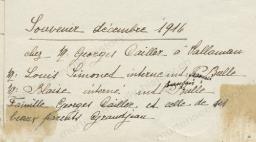 Souvenir décembre 1916
chez Mr Georges Cailler à Vallamand
Mr. Louis Simonet interné int. Balle
Mr. Blaise interné int. Balle
Famille Georges Cailler, et celle de ses
beaux parents Grandjean